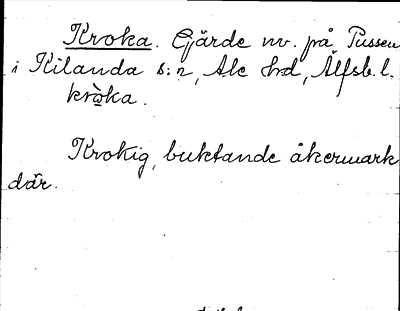 Kroka. Gjärde nv. på Pussen
i Kilanda s:n, Ale hd, Älfsb. l.
kròka.
Krokig, buktande åkermark
där.